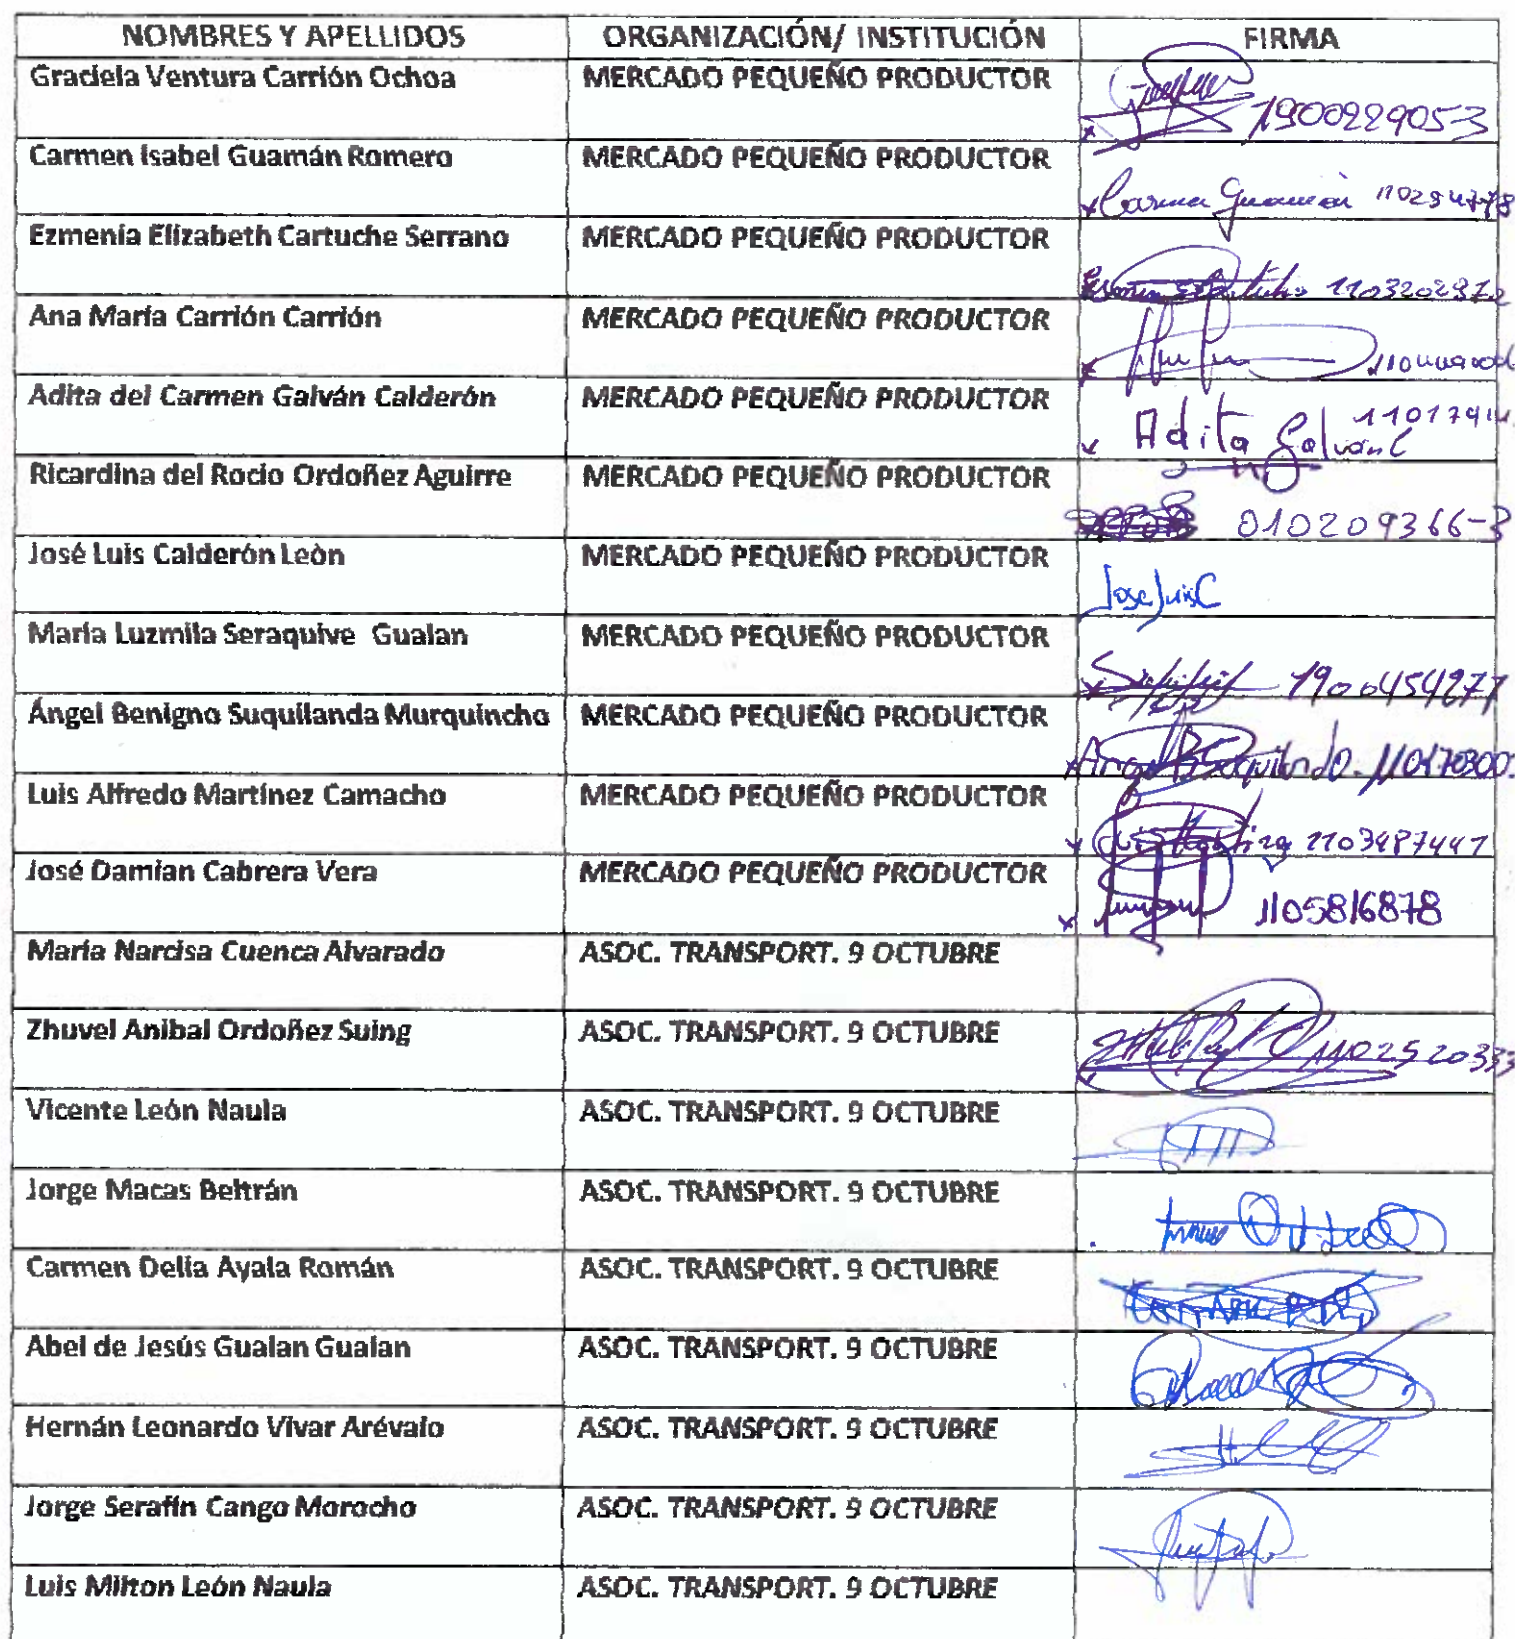 NOMBRES Y APELLIDOS ORGANIZACIÓN/ INSTITUCIÓN FIRMA
Graciela Ventura Carrión Ochoa MERCADO PEQUEÑO PRODUCTOR 1900229053
Carmen Isabel Guamán Romero MERCADO PEQUEÑO PRODUCTOR Carmen Guamán 110294778
Ezmenia Elizabeth Cartuche Serrano MERCADO PEQUEÑO PRODUCTOR 1103202972
Ana María Carrión Carrión MERCADO PEQUEÑO PRODUCTOR
Adita del Carmen Galván Calderón MERCADO PEQUEÑO PRODUCTOR Adita Galván C
Ricardina del Rocio Ordoñez Aguirre MERCADO PEQUEÑO PRODUCTOR 010209366-3
José Luis Calderón Leòn MERCADO PEQUEÑO PRODUCTOR Jose Luis C
María Luzmila Seraquive Gualan MERCADO PEQUEÑO PRODUCTOR 1900454277
Ángel Benigno Suquilanda Murquincho MERCADO PEQUEÑO PRODUCTOR
Luis Alfredo Martínez Camacho MERCADO PEQUEÑO PRODUCTOR 1103487441
José Damian Cabrera Vera MERCADO PEQUEÑO PRODUCTOR 1105816878
María Narcisa Cuenca Alvarado ASOC. TRANSPORT. 9 OCTUBRE
Zhuvel Anibal Ordoñez Suing ASOC. TRANSPORT. 9 OCTUBRE 1102520333
Vicente León Naula ASOC. TRANSPORT. 9 OCTUBRE
Jorge Macas Beltrán ASOC. TRANSPORT. 9 OCTUBRE
Carmen Delia Ayala Román ASOC. TRANSPORT. 9 OCTUBRE
Abel de Jesús Gualan Gualan ASOC. TRANSPORT. 9 OCTUBRE
Hernán Leonardo Vivar Arévalo ASOC. TRANSPORT. 9 OCTUBRE
Jorge Serafín Cango Morocho ASOC. TRANSPORT. 9 OCTUBRE
Luis Milton León Naula ASOC. TRANSPORT. 9 OCTUBRE